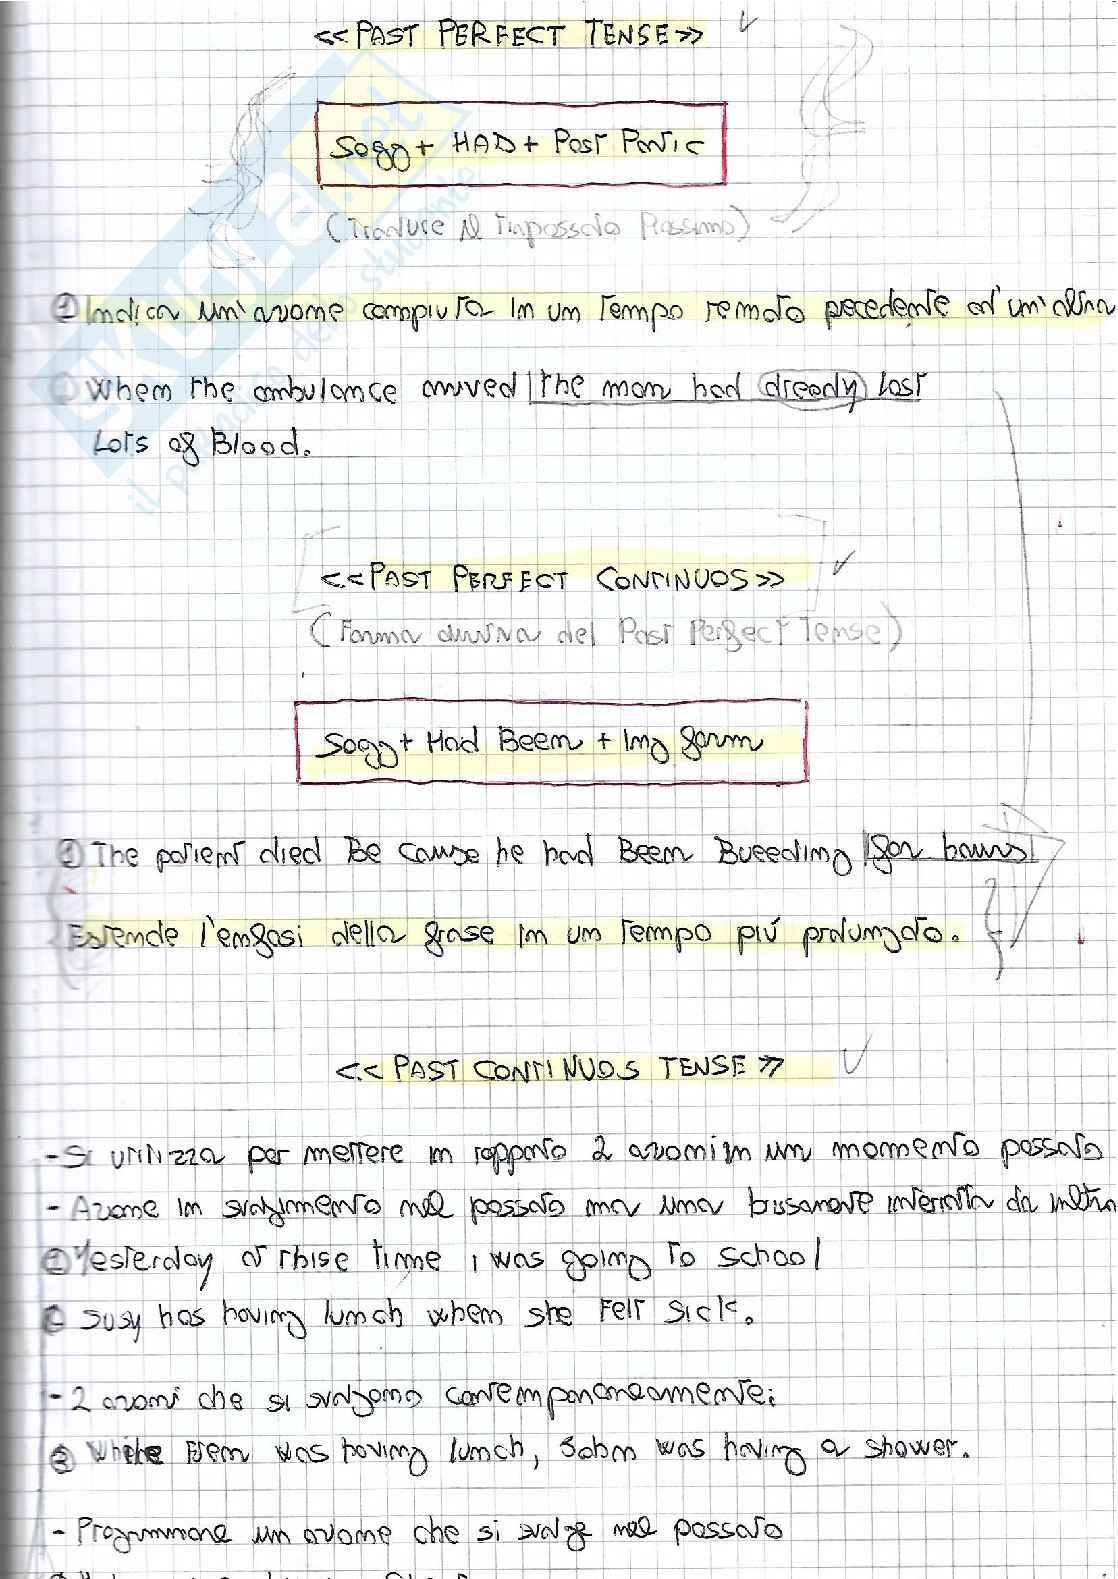 <<PAST PERFECT TENSE>>
Sogg + HAD + Past Partic
(Traduce il Trapassato Prossimo)
① Indica un'azione compiuta in un tempo remoto precedente ad un'altra
① When the ambulance arrived | the man had already lost
Lots of Blood.
<<PAST PERFECT CONTINUOS>>
(Forma durativa del Past Perfect Tense)
Sogg + Had Been + Ing form
① The patient died Be cause he had Been Bleeding | for hours |
Estende l'enfasi della frase in un tempo più prolungato.
<<PAST CONTINUOS TENSE>>
- Si utilizza per mettere in rapporto 2 azioni in un momento passato
- Azione in svolgimento nel passato ma una interrotta da
① Yesterday at thise time I was going to school
② Susy has having lunch when she Felt sick.
- 2 azioni che si svolgono contemporaneamente:
③ While was having lunch, John was having a shower.
- un azione che si svolge nel passato
skuola.net
il paradiso dello studente